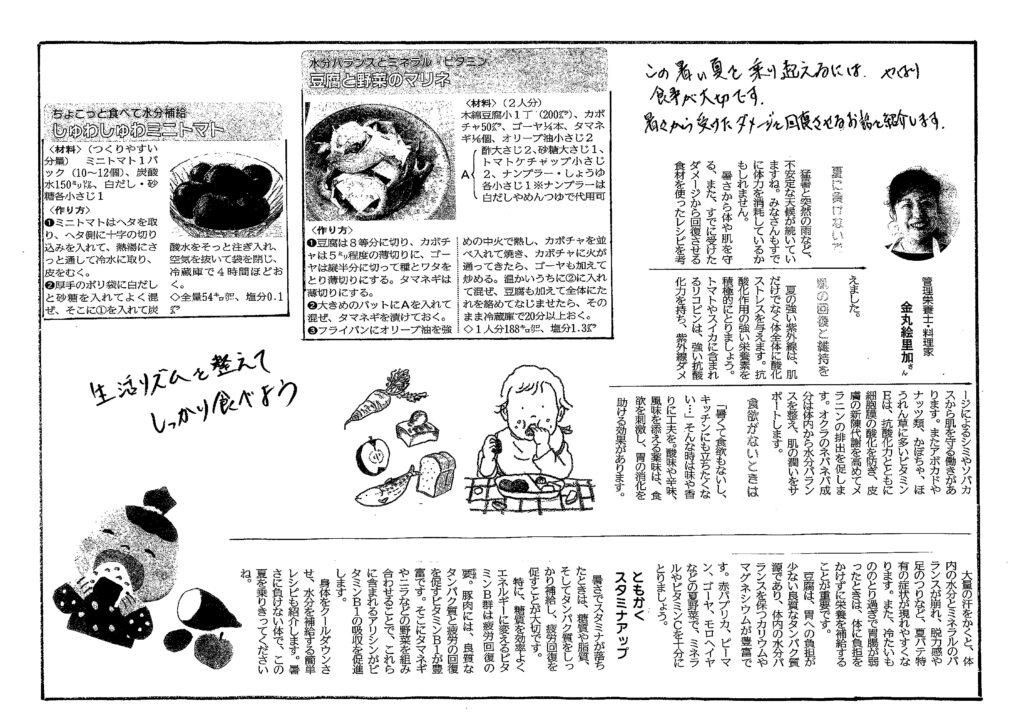 この暑い夏を乗り越えるには、やはり
食事が大切です。
暑さから受けたダメージを回復させるお話を紹介します。
水分バランスとミネラル・ビタミン
豆腐と野菜のマリネ
〈材料〉(2人分)
木綿豆腐小1丁(200㌘)、カボ
チャ50㌘、ゴーヤ¼本、タマネ
ギ⅛個、オリーブ油小さじ2
A
酢大さじ2、砂糖大さじ1、
トマトケチャップ小さじ
2、ナンプラー・しょうゆ
各小さじ1※ナンプラーは
白だしやめんつゆで代用可
〈作り方〉
❶豆腐は8等分に切り、カボチ
ャは5㍉程度の薄切りに、ゴー
ヤは縦半分に切って種とワタを
とり薄切りにする。タマネギは
薄切りにする。
❷大きめのバットにAを入れて
混ぜ、タマネギを漬けておく。
❸フライパンにオリーブ油を強
めの中火で熱し、カボチャを並
べ入れて焼き、カボチャに火が
通ってきたら、ゴーヤも加えて
炒める。温かいうちに②に入れ
て混ぜ、豆腐も加えて全体にた
れを絡めてなじませたら、その
まま冷蔵庫で20分以上おく。
◇1人分188㌔㌍、塩分1.3㌘
ちょこっと食べて水分補給
しゅわしゅわミニトマト
〈材料〉(つくりやすい
分量) ミニトマト1パ
ック(10〜12個)、炭酸
水150㍉㍑、白だし・砂
糖各小さじ1
〈作り方〉
❶ミニトマトはヘタを取
り、ヘタ側に十字の切り
込みを入れて、熱湯にさ
っと通して冷水に取り、
皮をむく。
❷厚手のポリ袋に白だし
と砂糖を入れてよく混
ぜ、そこに①を入れて炭
酸水をそっと注ぎ入れ、
空気を抜いて袋を閉じ、
冷蔵庫で4時間ほどお
く。
◇全量54㌔㌍、塩分0.1
㌘
管理栄養士・料理家
金丸絵里加さん
夏に負けない
猛暑と突然の雨など、
不安定な天候が続いてい
ますね。みなさんもすで
に体力を消耗しているか
もしれません。
暑さから体や肌を守
る、また、すでに受けた
ダメージから回復させる
食材を使ったレシピを考
えました。
肌の回復と維持を
夏の強い紫外線は、肌
だけでなく体全体に酸化
ストレスを与えます。抗
酸化作用の強い栄養素を
積極的にとりましょう。
トマトやスイカに含まれ
るリコピンは、強い抗酸
化力を持ち、紫外線ダメ
ージによるシミやソバカ
スから肌を守る働きがあ
ります。またアボカドや
ナッツ類、かぼちゃ、ほ
うれん草に多いビタミン
Eは、抗酸化力とともに
細胞膜の酸化を防ぎ、皮
膚の新陳代謝を高めてメ
ラニンの排出を促しま
す。オクラのネバネバ成
分は体内から水分バラン
スを整え、肌の潤いをサ
ポートします。
食欲がないときは
「暑くて食欲もないし、
キッチンにも立ちたくな
い…」そんな時は味や香
りに工夫を。酸味や辛味、
風味を添える薬味は、食
欲を刺激し、胃の消化を
助ける効果があります。
大量の汗をかくと、体
内の水分とミネラルのバ
ランスが崩れ、脱力感や
足のつりなど、夏バテ特
有の症状が現れやすくな
ります。また、冷たいも
ののとり過ぎで胃腸が弱
ったときは、体に負担を
かけずに栄養を補給する
ことが重要です。
豆腐は、胃への負担が
少ない良質なタンパク質
源であり、体内の水分バ
ランスを保つカリウムや
マグネシウムが豊富で
す。赤パプリカ、ピーマ
ン、ゴーヤ、モロヘイヤ
などの夏野菜で、ミネラ
ルやビタミンCを十分に
とりましょう。
ともかく
スタミナアップ
暑さでスタミナが落ち
たときは、糖質や脂質、
そしてタンパク質をしっ
かり補給し、疲労回復を
促すことが大切です。
特に、糖質を効率よく
エネルギーに変えるビタ
ミンB群は疲労回復の
要。豚肉には、良質な
タンパク質と疲労の回復
を促すビタミンB1が豊
富です。そこにタマネギ
やニラなどの野菜を組み
合わせることで、これら
に含まれるアリシンがビ
タミンB1の吸収を促進
します。
身体をクールダウンさ
せ、水分を補給する簡単
レシピも紹介します。暑
さに負けない体で、この
夏を乗りきってください
ね。
生活リズムを整えて
しっかり食べよう